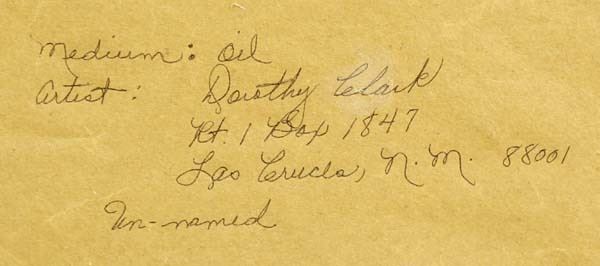 Medium: Oil
Artist: Dorothy Clark
Rt. 1 Box 1847
Las Cruces, N.M. 88001
Un-named